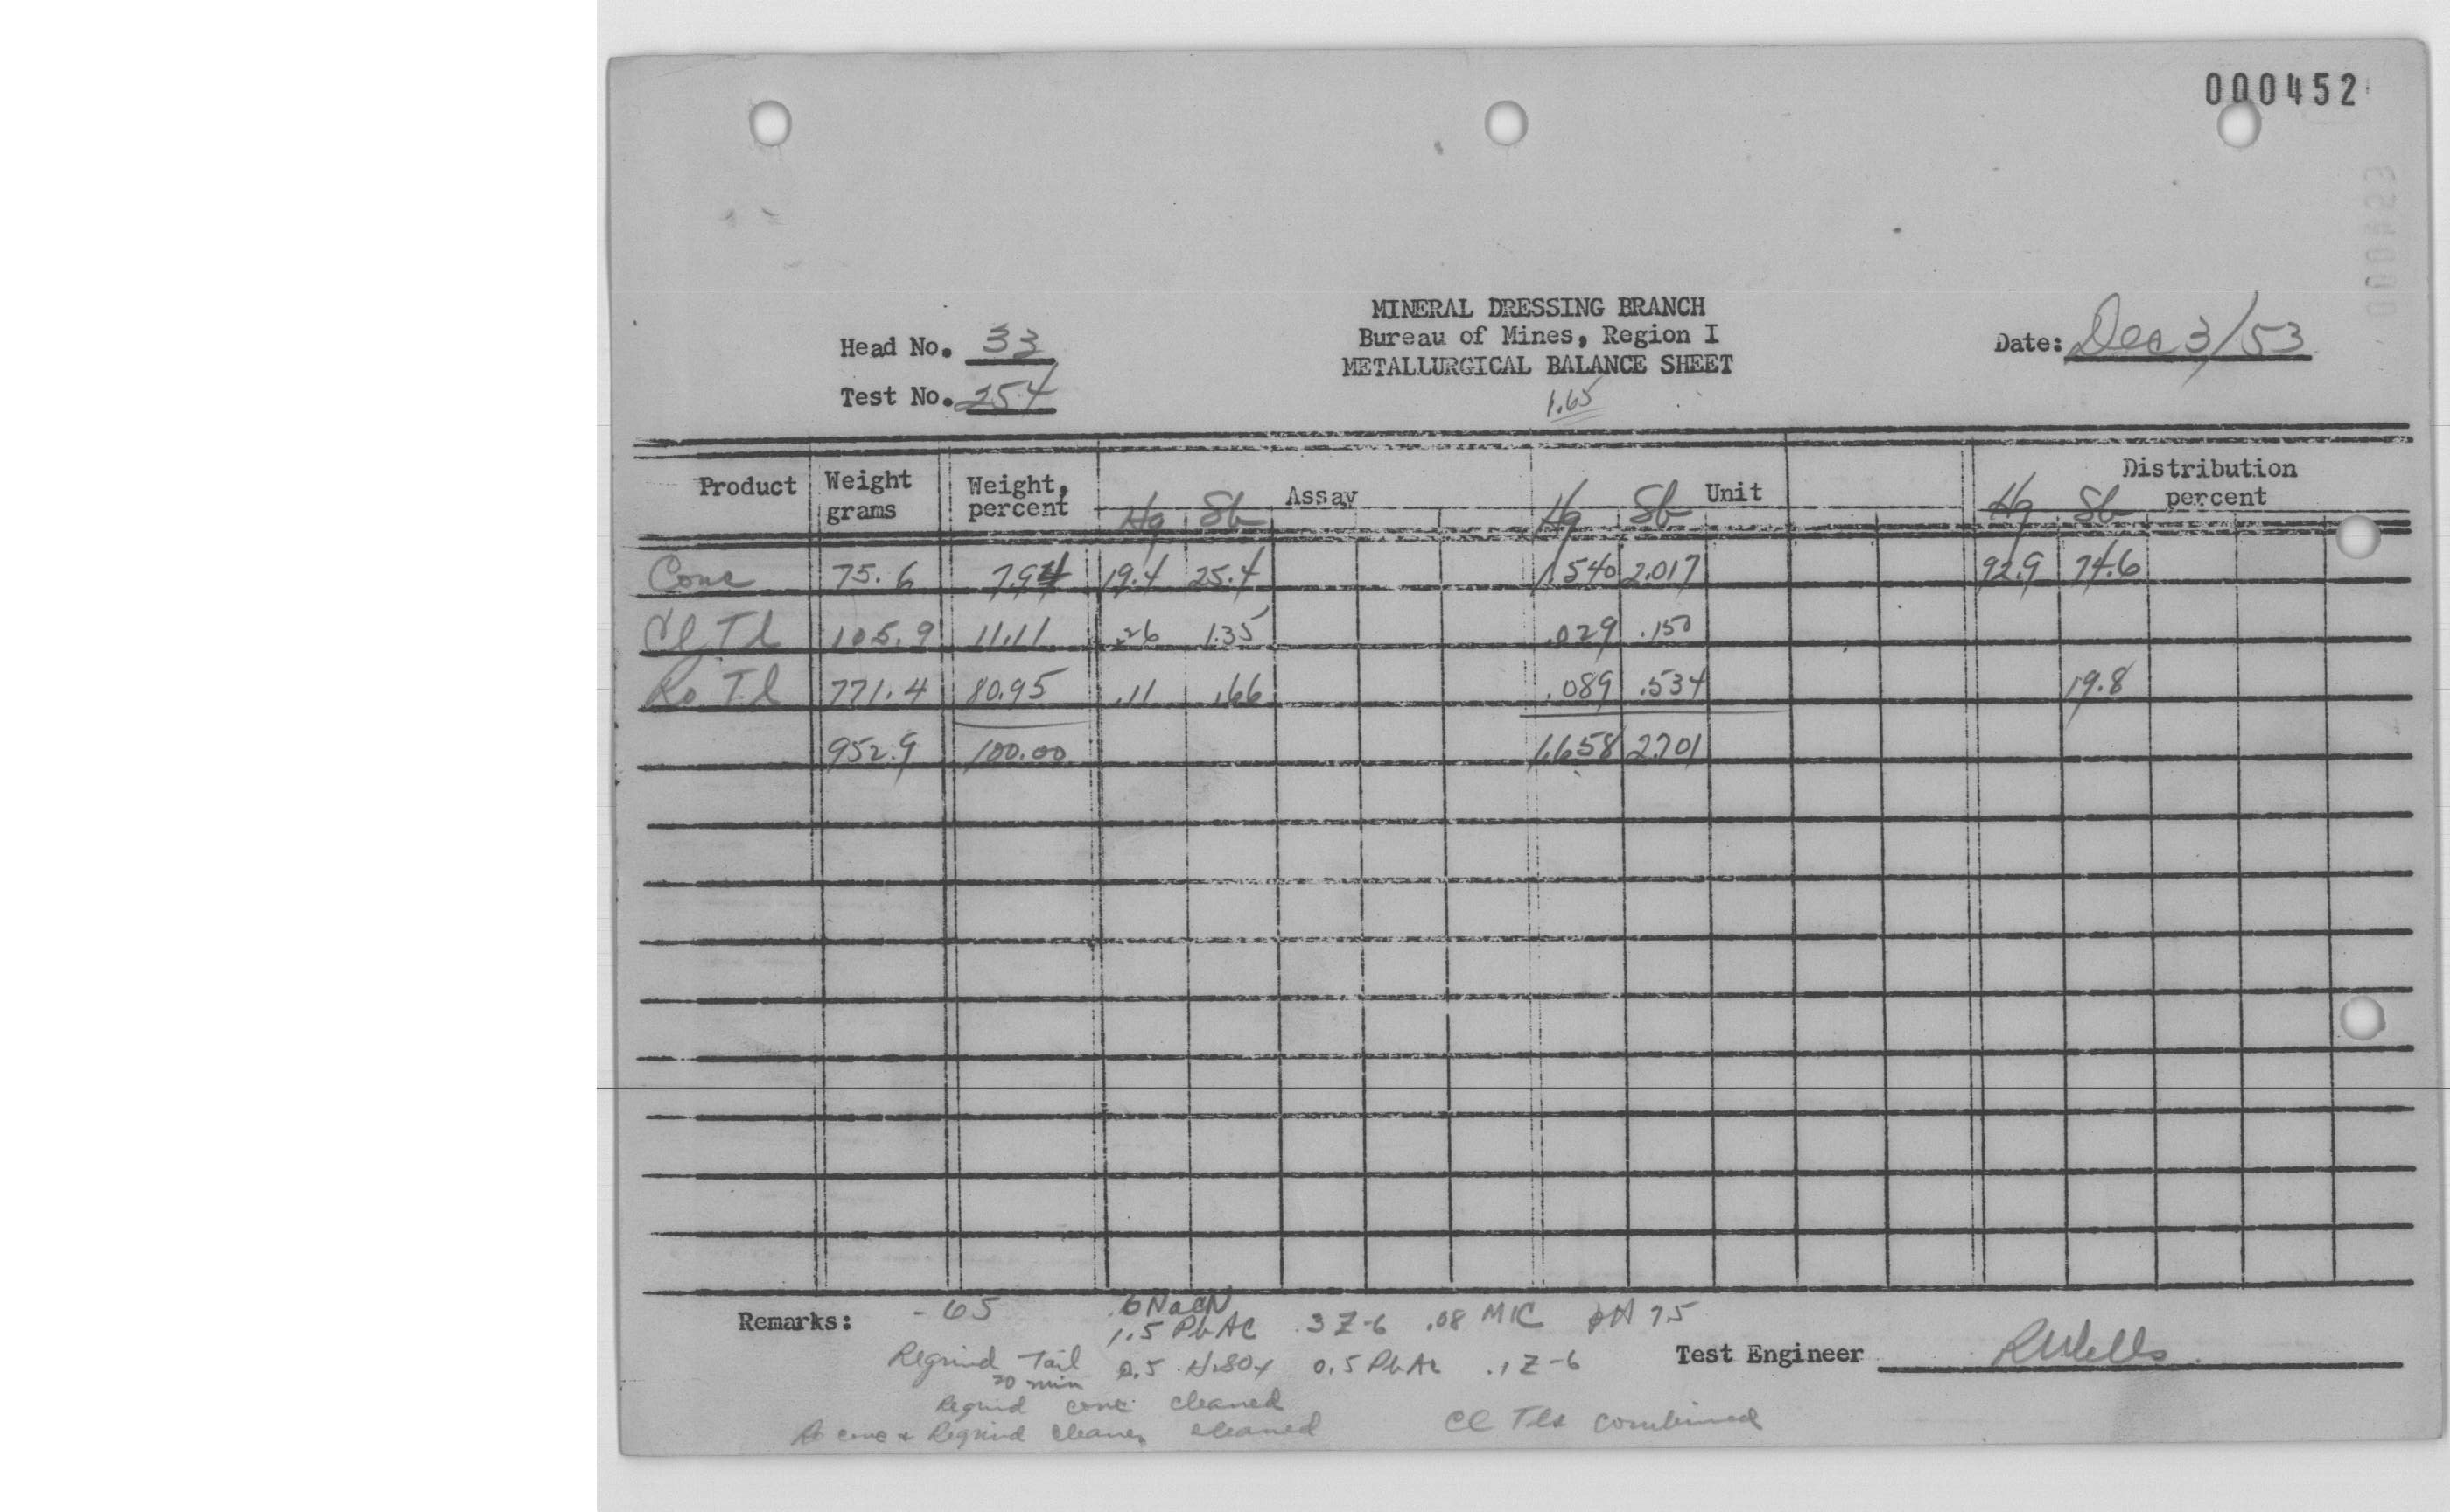 000452
MINERAL DRESSING BRANCH
Head No. 33 Bureau of Mines, Region I Date: Dec 3/53
METALLURGICAL BALANCE SHEET
Test No. 254 1.65
Product Weight grams Weight, percent Assay Unit Distribution percent
Hg Sb Hg Sb Hg Sb
Conc 75.6 7.94 19.4 25.4 1.540 2.017 92.9 74.6
Cl Tl 105.9 11.11 .26 1.35 .029 .150
Ro Tl 771.4 80.95 .11 .66 .089 .534 19.8
952.9 100.00 1.658 2.701
Remarks: -65 .6 NaCN
1.5 PbAc .3 Z-6 .08 MIC pH 7.5
Regrind Tail 0.5 H2SO4 0.5 PbAc .1 Z-6 Test Engineer RWells
20 min
Regrind conc cleaned
Ro conc & Regrind cleaner cleaned Cl Tls combined